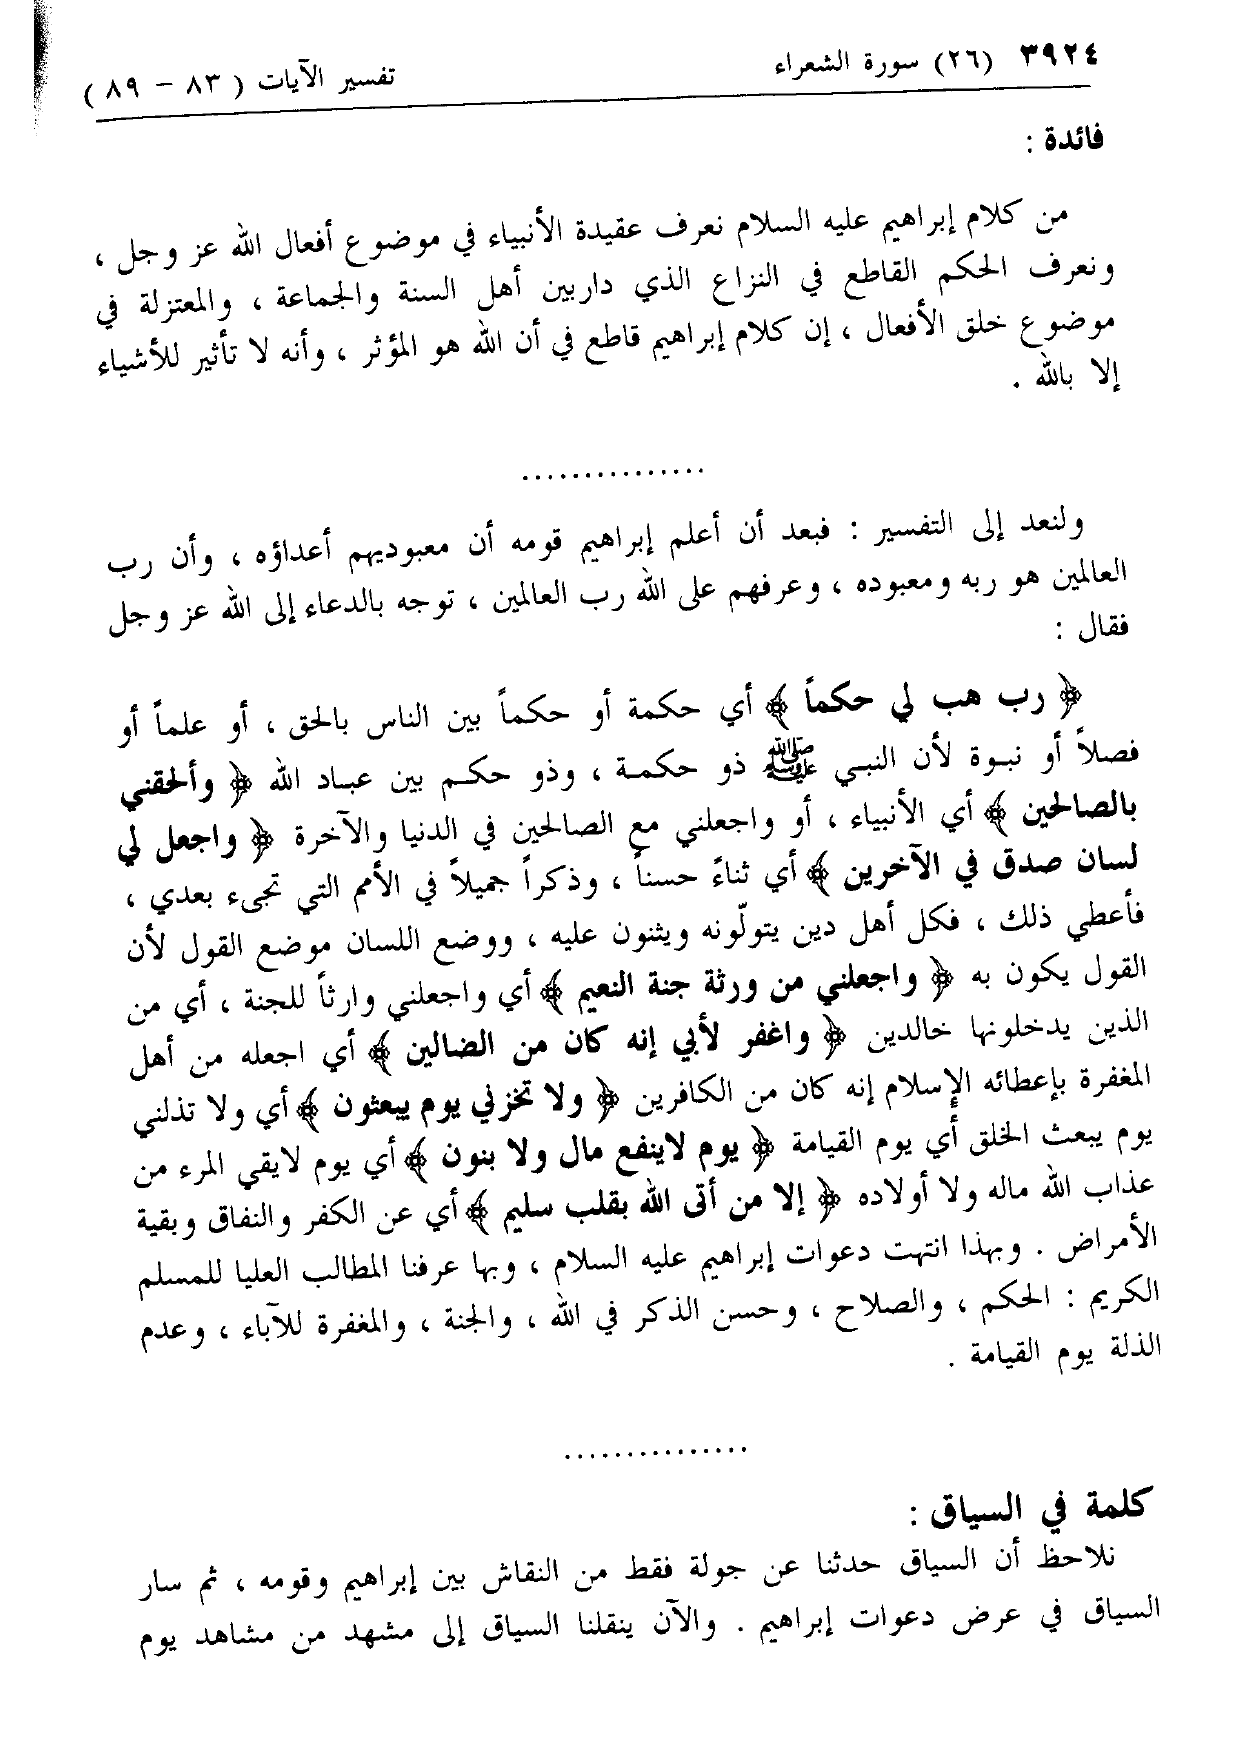 ٣٩٢٤ (٢٦) سورة الشعراء تفسير الآيات ( ٨٣ – ٨٩ )
فائدة :
من كلام إبراهيم عليه السلام نعرف عقيدة الأنبياء في موضوع أفعال الله عز وجل ،
ونعرف الحكم القاطع في النزاع الذي داربين أهل السنة والجماعة ، والمعتزلة في
موضوع خلق الأفعال ، إن كلام إبراهيم قاطع في أن الله هو المؤثر ، وأنه لا تأثير للأشياء
إلا بالله .
...............
ولنعد إلى التفسير : فبعد أن أعلم إبراهيم قومه أن معبوديهم أعداؤه ، وأن رب
العالمين هو ربه ومعبوده ، وعرفهم على الله رب العالمين ، توجه بالدعاء إلى الله عز وجل
فقال :
﴿ رب هب لي حكماً ﴾ أي حكمة أو حكماً بين الناس بالحق ، أو علماً أو
فصلاً أو نبوة لأن النبي ﷺ ذو حكمة ، وذو حكم بين عباد الله ﴿ وألحقني
بالصالحين ﴾ أي الأنبياء ، أو واجعلني مع الصالحين في الدنيا والآخرة ﴿ واجعل لي
لسان صدق في الآخرين ﴾ أي ثناءً حسناً ، وذكراً جميلاً في الأمم التي تجيء بعدي ،
فأعطي ذلك ، فكل أهل دين يتولّونه ويثنون عليه ، ووضع اللسان موضع القول لأن
القول يكون به ﴿ واجعلني من ورثة جنة النعيم ﴾ أي واجعلني وارثاً للجنة ، أي من
الذين يدخلونها خالدين ﴿ واغفر لأبي إنه كان من الضالين ﴾ أي اجعله من أهل
المغفرة بإعطائه الإسلام إنه كان من الكافرين ﴿ ولا تخزني يوم يبعثون ﴾ أي ولا تذلني
يوم يبعث الخلق أي يوم القيامة ﴿ يوم لاينفع مال ولا بنون ﴾ أي يوم لايقي المرء من
عذاب الله ماله ولا أولاده ﴿ إلا من أتى الله بقلب سليم ﴾ أي عن الكفر والنفاق وبقية
الأمراض . وبهذا انتهت دعوات إبراهيم عليه السلام ، وبها عرفنا المطالب العليا للمسلم
الكريم : الحكم ، والصلاح ، وحسن الذكر في الله ، والجنة ، والمغفرة للآباء ، وعدم
الذلة يوم القيامة .
...............
كلمة في السياق :
نلاحظ أن السياق حدثنا عن جولة فقط من النقاش بين إبراهيم وقومه ، ثم سار
السياق في عرض دعوات إبراهيم . والآن ينقلنا السياق إلى مشهد من مشاهد يوم